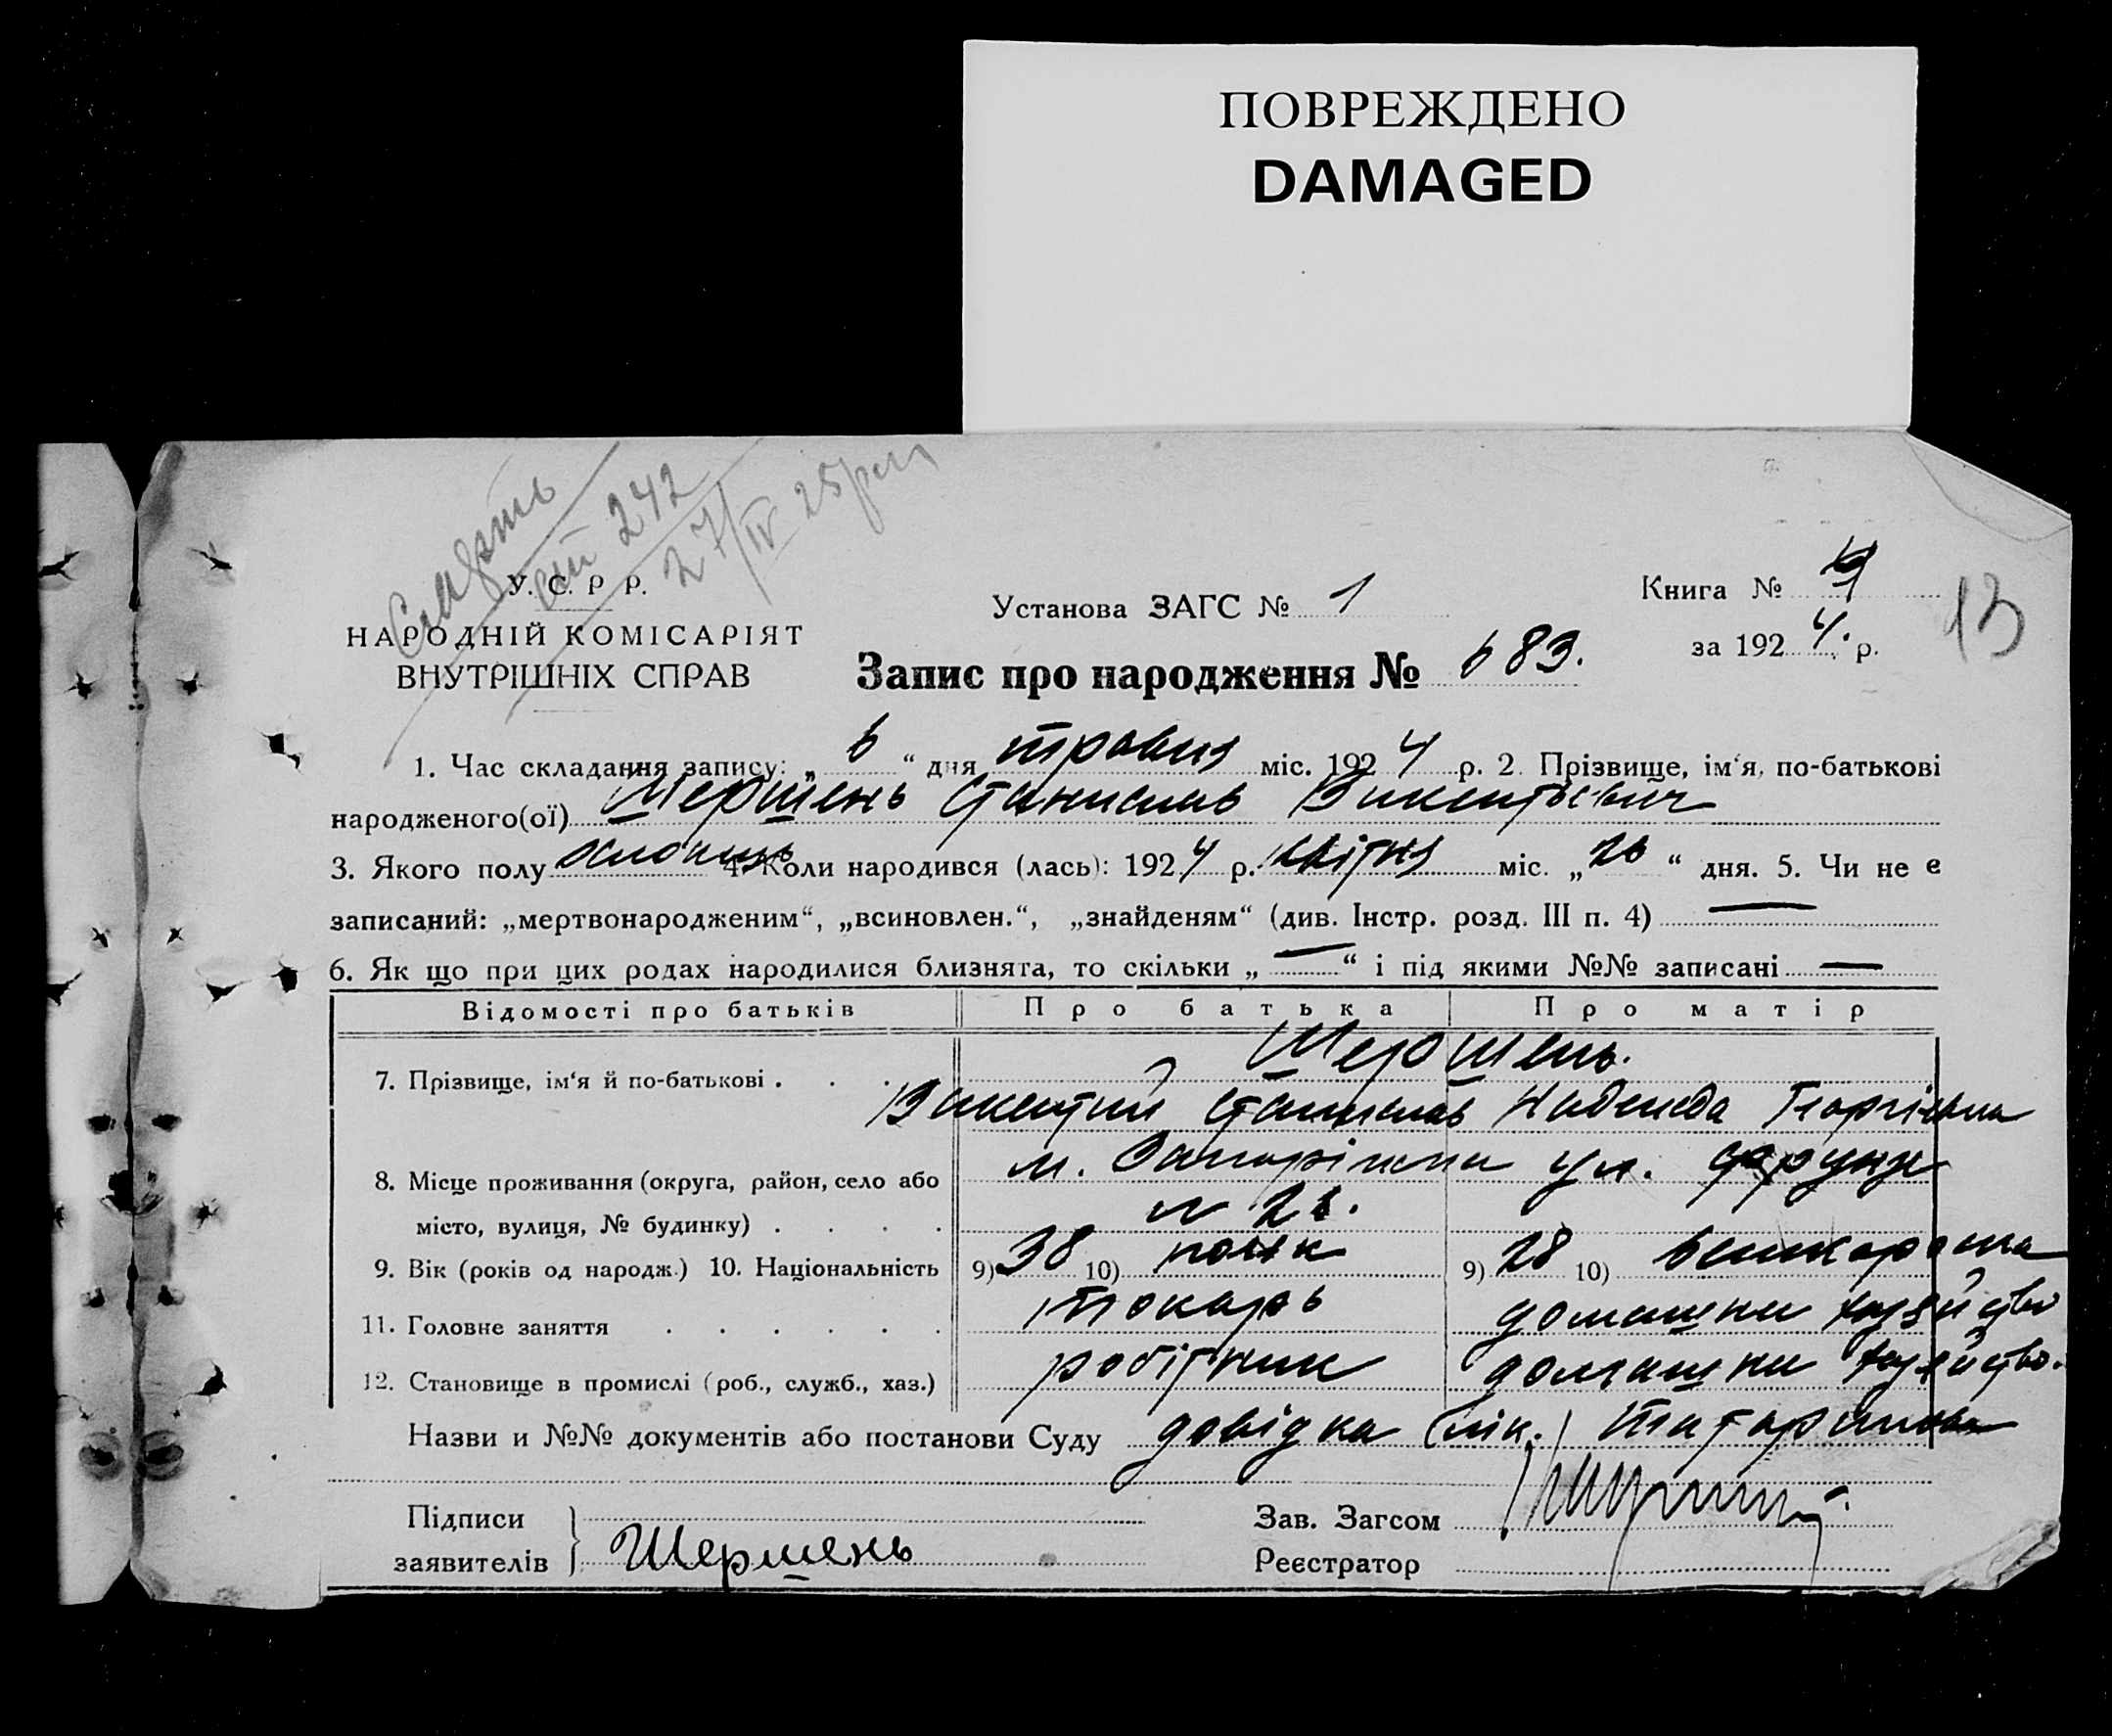 ПОВРЕЖДЕНО
DAMAGED
см 242
27/IV 25
У. С. Р Р.
НАРОДНІЙ КОМІСАРІЯТ
ВНУТРІШНІХ СПРАВ
Установа ЗАГС № 1
Книга № 9
за 1924. р.
13
Запис про народження № 683.
1. Час складання запису: „ 6 “ дня травня міс. 1924 р. 2. Прізвище, ім‘я, по-батькові
народженого(ої) Шершень Станислав Викентьевич
3. Якого полу хлопець 4. Коли народився (лась): 1924 р. квітня міс. „ 26 “ дня. 5. Чи не є
записаний: „мертвонародженим“, „всиновлен.“, „знайденям“ (див. Інстр. розд. III п. 4) —
6. Як що при цих родах народилися близнята, то скільки „ — “ і під якими №№ записані —
Відомості про батьків Про батька Про матір
7. Прізвище, ім‘я й по-батькові . . . Шершень.
Викентий Станислав Надежда Георгіевна
8. Місце проживання (округа, район, село або м. Запоріжжя ул. Фрунзе
місто, вулиця, № будинку) . . . . №
9. Вік (років од народж.) 10. Національність 9) 38 10) поляк 9) 28 10)
11. Головне заняття . . . . . . токарь домашни хазяйство
12. Становище в промислі (роб., служб., хаз.) робітник домашни хазяйство.
Назви и №№ документів або постанови Суду довідка лік.
Підписи
заявителів } Шершень
Зав. Загсом
Реєстратор